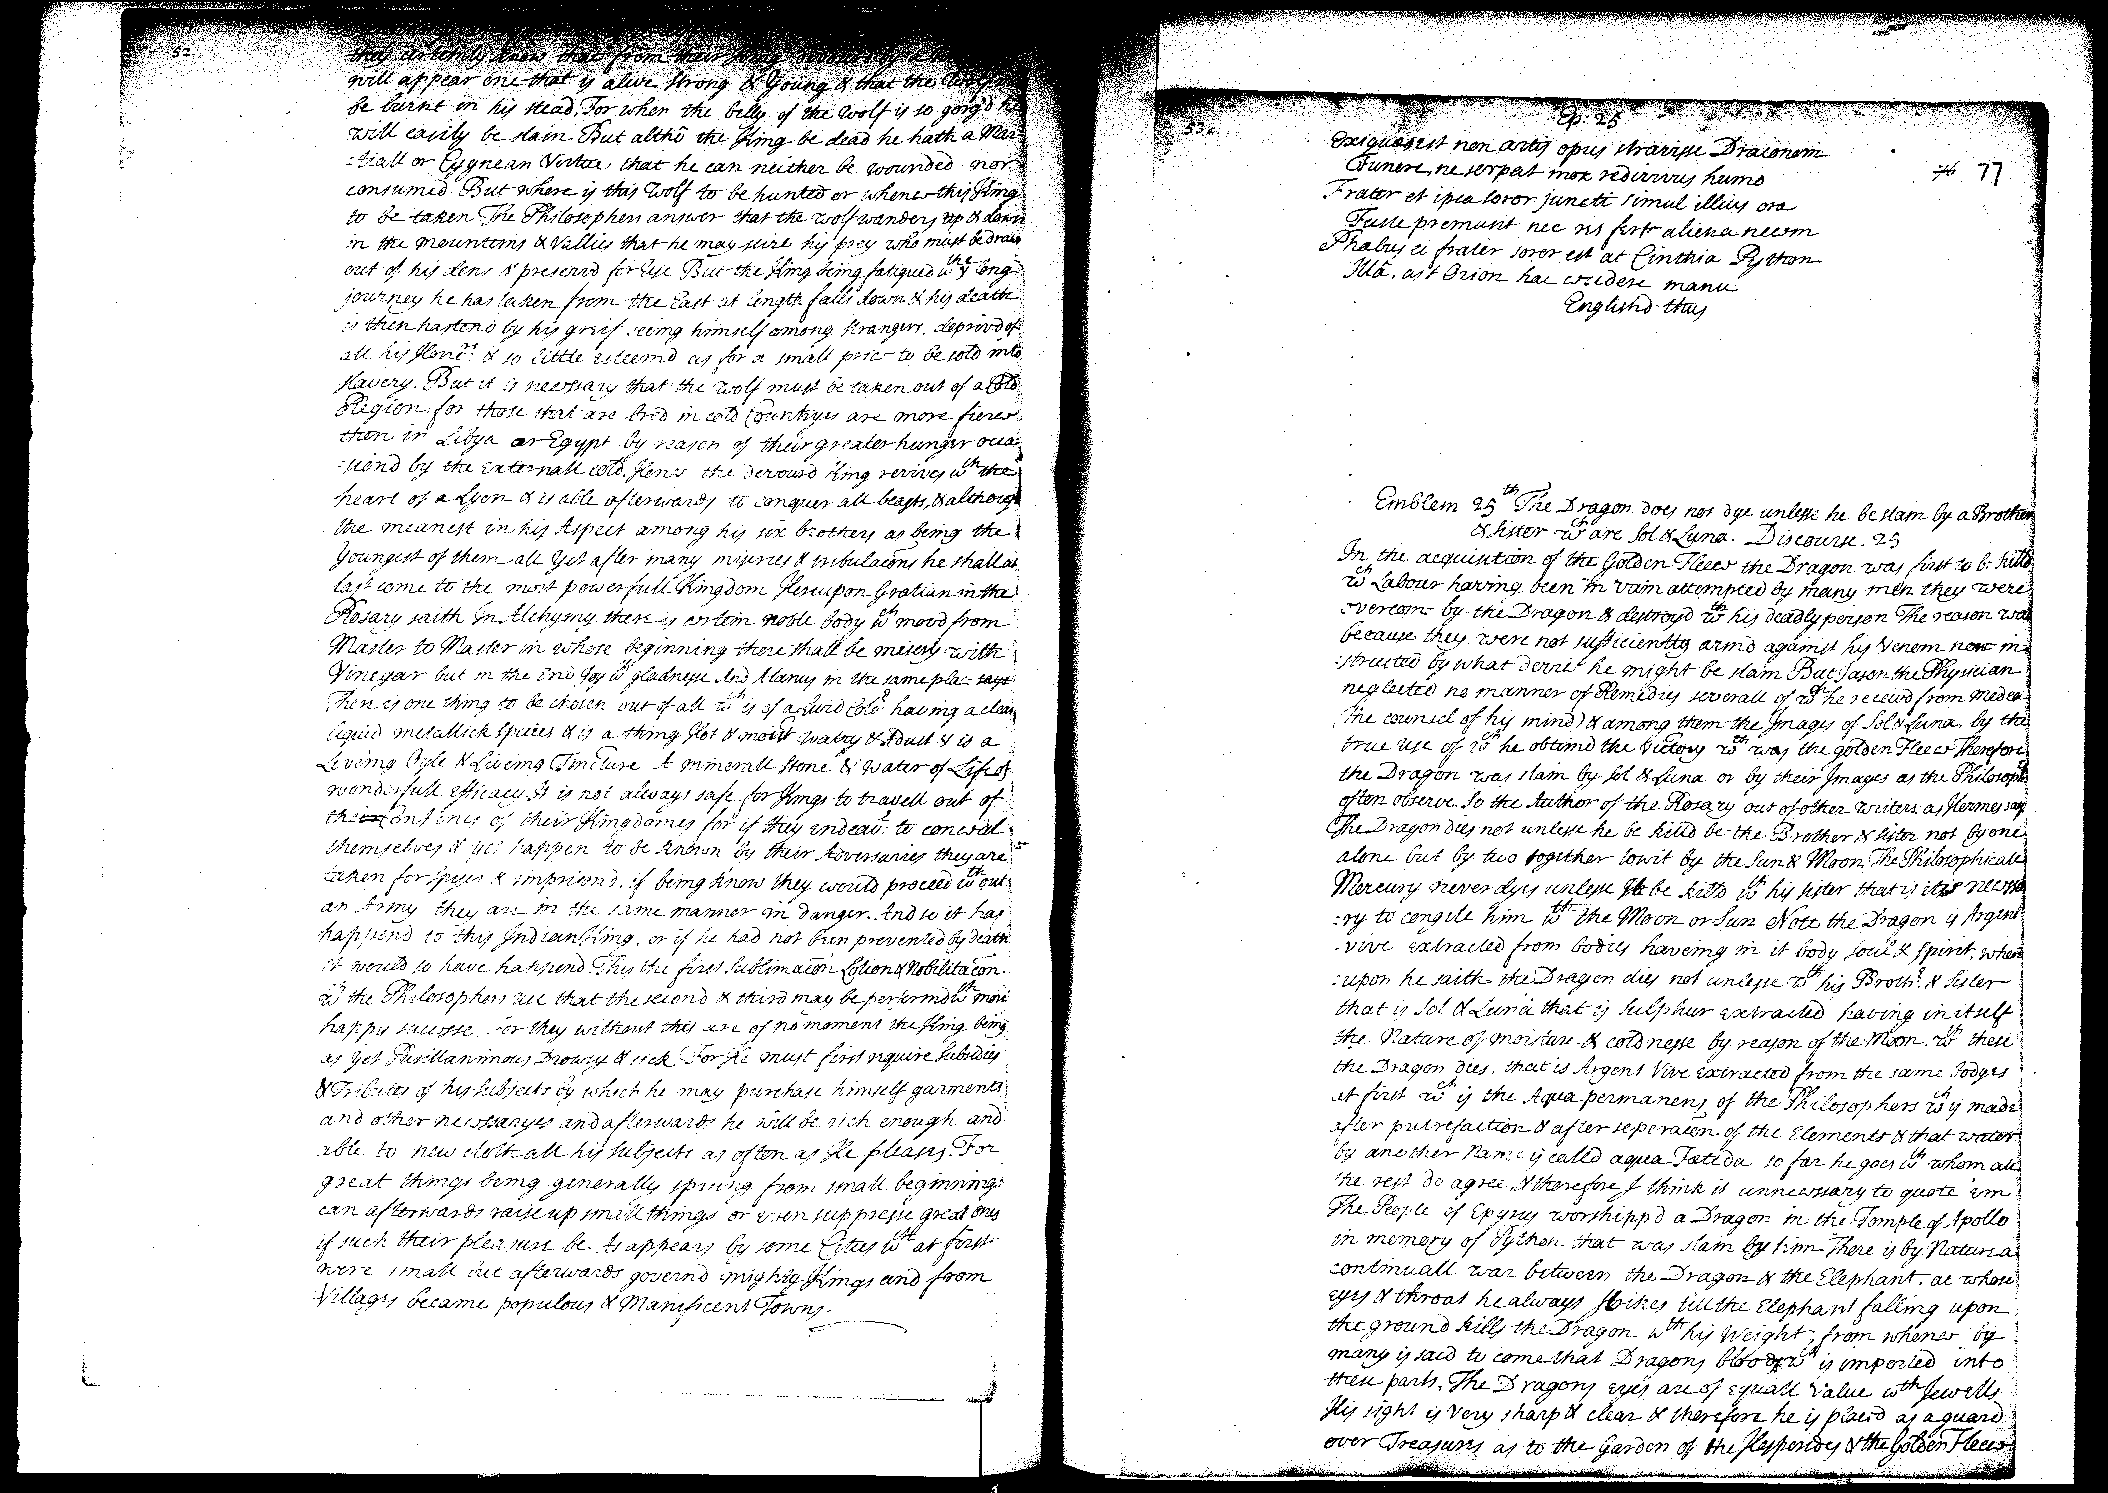 52
they certainly know that from their King
will appear one that is alive strong & Young & that the Wolf
be burnt in his stead, For when the belly of the Wolf is so gorg'd he
will easily be slain But altho the King be dead he hath a Mar
:tiall or Cygnean Virtue, that he can neither be wounded nor
consumed But where is this Wolf to be hunted or whence this King
to be taken The Philosophers answer that the wolf wanders up & down
in the mountains & Vallies that he may seize his prey who must be drawn
out of his dens & preserv'd for Use But the King being fatigued wth ye long
journey he has taken from the East at length falls down & his death
is then hasten'd by his grief seeing himself among strangers, depriv'd of
all his Honrs & so little esteem'd as for a small price to be sold into
slavery. But it is necessary that the wolf must be taken out of a Cold
Region for those that are bred in cold Countryes are more fierce
then in Libya or Egypt by reason of their greater hunger occa
:siond by the Externall cold, Hence the devour'd King revives wth the
heart of a Lyon & is able afterwards to conquer all beasts, & although
the meanest in his Aspect among his six brothers as being the
Youngest of them all yet after many miseries & tribulacons he shall at
last come to the most powerfull Kingdom Hereupon Gratian in the
Rosary saith In Alchymy there is certein noble body wch mov'd from
Master to Master in whose beginning there shall be misery with
Vinegar but in the End Joy wth gladnesse And Alanus in the same place says
There is one thing to be chosen out of all wch is of a livid Colr having a clear
liquid metallick species & is a thing Hot & moist watry & Adust & is a
Liveing Oyle & Liveing Tincture A minerall Stone & Water of Life of
wonderfull efficacy. It is not always safe for Kings to travell out of
the Confines of their Kingdomes for if they endeavr to conceal
themselves & yet happen to be known by their Adversaries they are
taken for spyes & imprison'd, if being know they would proceed wthout
an Army they are in the same manner in danger. And so it has
happen'd to this Indian King, or if he had not been prevented by death
it would so have happend This the first sublimacon Lotion & Nobilitacon
wch the Philosophers use that the second & third may be perform'd wth more
happy successe For they without this are of no moment the King being
as yet Pusillanimous Drowsy & sick For He must first require Subsidies
& Tributes of his subjects by which he may purchase himself garments
and other necessaryes and afterwards he will be rich enough and
able to new cloth all his Subjects as often as He pleases. For
great things being generally sprung from small beginnings
can afterwards raise up small things or even suppresse great ones
if such their pleasure be As appears by some Cities wch at first
were small but afterwards govern'd mighty Kings and from
Villages became populous & Manificent Towns.
Ep: 25
76 77
Exiguæ est non artis opus stravisse Draconem
Funere, ne serpat mox redivivus humo
Frater et ipsa soror juncti simul illius ora
Fuste premunt nec res fert aliena necem
Phæbus ei frater soror est at Cinthia Python
Illâ, ast Orion hac cecidere manu
English'd thus
Emblem 25th The Dragon does not dye unlesse he be slain by a Brother
& sister wch are Sol & Luna. Discourse. 25
In the acquisition of the Golden Fleece the Dragon was first to be kill'd
wch Labour having been in vain attempted by many men they were
overcome by the Dragon & destroy'd wth his deadly poison The reason was
because they were not sufficiently arm'd against his Venem nor in
:structed by what device he might be slain But Jason the Physician
neglected no manner of Remedies severall of wch he receiv'd from Medea
(the counsel of his mind) & among them the Images of Sol & Luna, by the
true use of wch he obtain'd the Victory wch was the golden Fleece Therefore
the Dragon was slain by Sol & Luna or by their Images as the Philosophrs
often observe So the Author of the Rosary out of other writers as Hermes says
The Dragon dies not unlesse he be kill'd be the Brother & sister not by one
alone but by two together towit by the Sun & Moon The Philosophicall
Mercury never dyes unlesse He be kill'd wth his sister that is it is necessa
:ry to congele him wth the Moon or Sun Note the Dragon is Argent
:vive extracted from bodies haveing in it body soul & spirit, where
:upon he saith the Dragon dies not unlesse wth his Brothr & Sister
that is Sol & Luna that is Sulphur extracted having in it self
the Nature of moisture & coldnesse by reason of the Moon. wth these
the Dragon dies, that is Argent Vive extracted from the same bodyes
at first wch is the Aqua permanens of the Philosophers wch is made
after putrefaction & after seperacon of the Elements & that water
by another Name is called aqua Fœtida so far he goes wth whom all
the rest do agree & therefore I think it unnecessary to quote 'em
The People of Epyrus worshipp'd a Dragon in the Temple of Apollo
in memory of Python that was slain by him There is by Nature a
continuall war between the Dragon & the Elephant, at whose
eyes & throat he always strikes till the Elephant falling upon
the ground kills the Dragon wth his Weight, from whence by
many is said to come that Dragons blood wch is imported into
these parts. The Dragons eyes are of equall Value wth Jewells
His sight is very sharp & clear & therefore he is plac'd as a guard
over Treasures as to the Garden of the Hesperides & the Golden Fleece